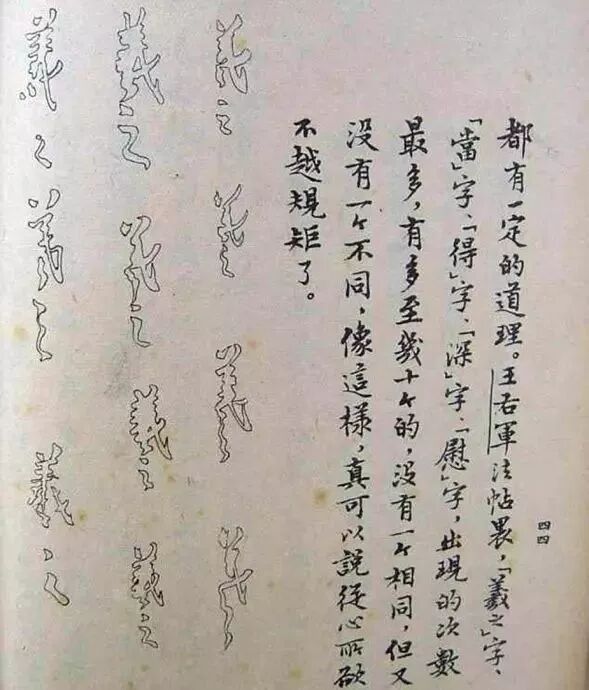 四四
都有一定的道理。王右軍法帖裏,「羲之」字、
「當」字、「得」字、「深」字、「慰」字,出現的次數
最多,有多至幾十个的,没有一个相同,但又
没有一个不同,像這樣,真可以說從心所欲
不越規矩了。
羲之
羲之
羲之
羲之
羲之
羲之
羲之
羲之
羲之
羲之
羲之